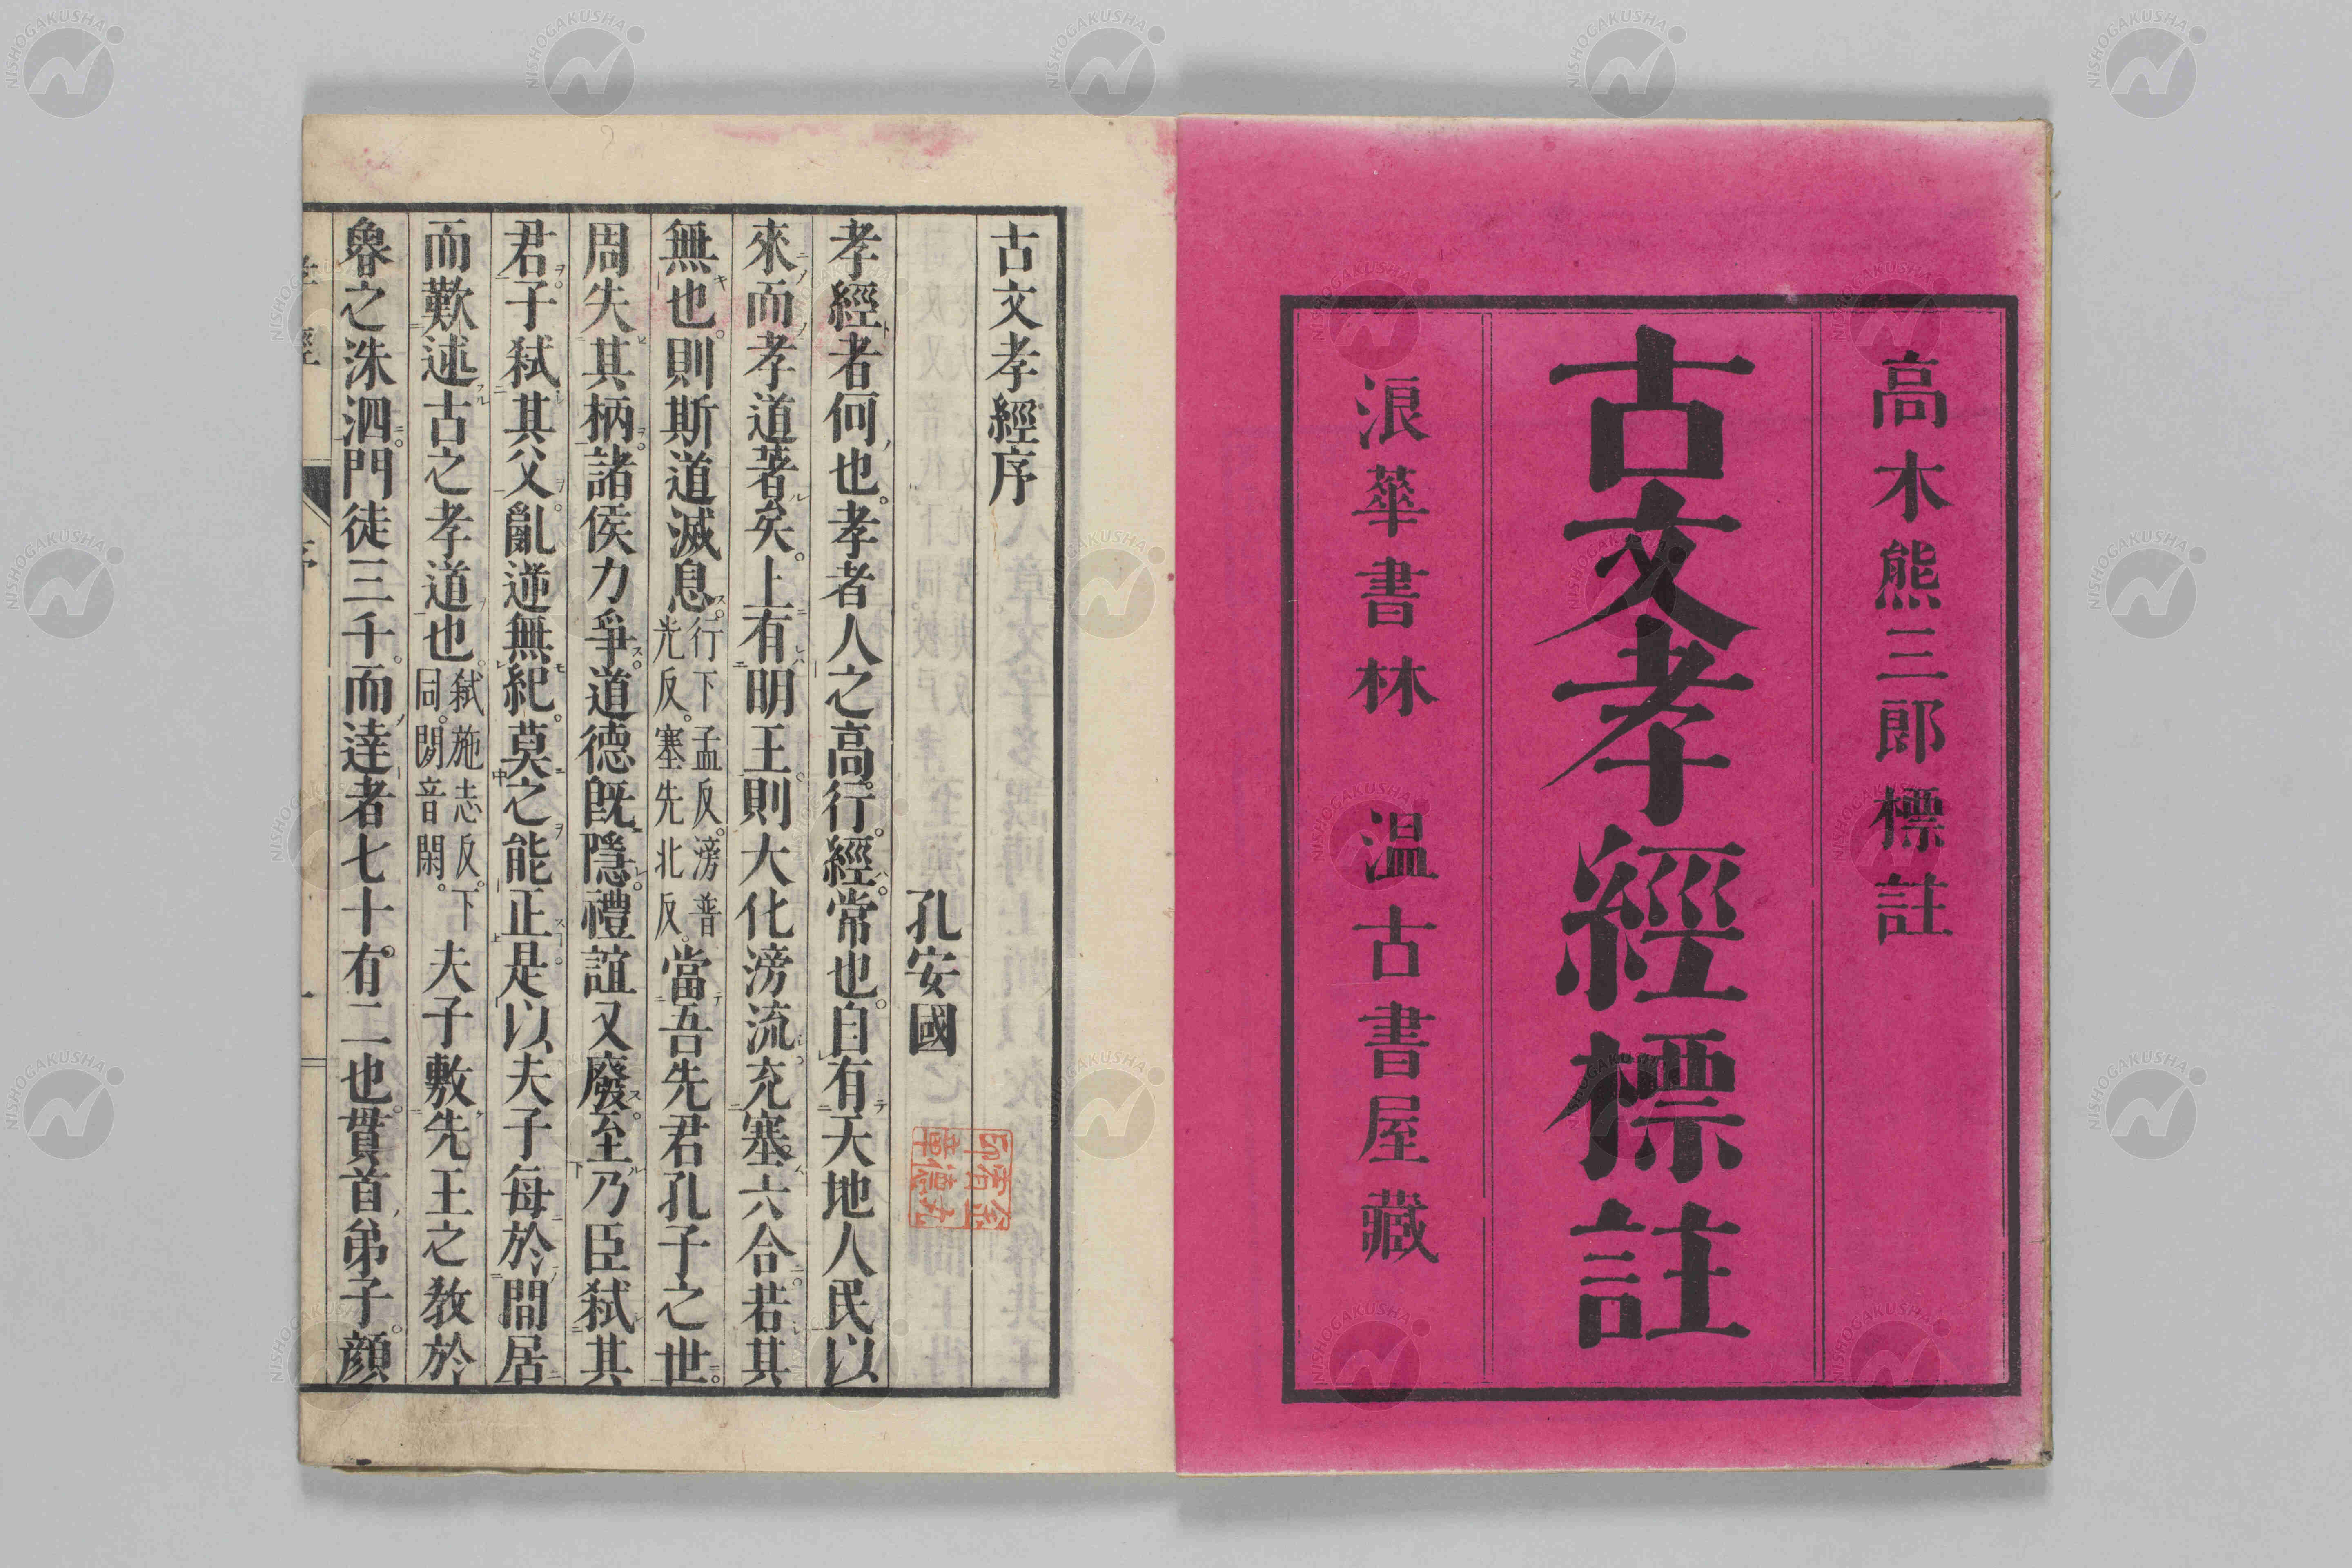 高木熊三郎標註
古文孝經標註
浪華書林 温古書屋藏
古文孝經序
孔安國
孝經者何也。孝者人之高行。經常也。自有天地人民以
來而孝道著矣。上有明王。則大化滂流。充塞六合。若其
無也。則斯道滅息。行下孟反。滂普光反。塞先北反。當吾先君孔子之世。
周失其柄。諸侯力爭。道德既隱。禮誼又廢。至乃臣弑其
君。子弑其父。亂逆無紀。莫之能正。是以夫子每於間居
而歎述古之孝道也。弑施志反。下同。閒音閑。夫子敷先王之教於
魯之洙泗。門徒三千。而達者七十有二也。貫首弟子。顏
NISHOGAKUSHA